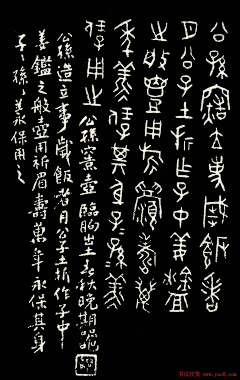 公孫窹立事歲飯耆
月公子土折乍子中姜
之般壺用旂眉壽萬
年羕保其身子孫羕
保用之 公孫窹壺 臨朐出土春秋晚期
公孫造立事歲飯耆月公子土折作子中
姜鑑之般壺用祈眉壽萬年永保其身
子〻孫〻羕保用之